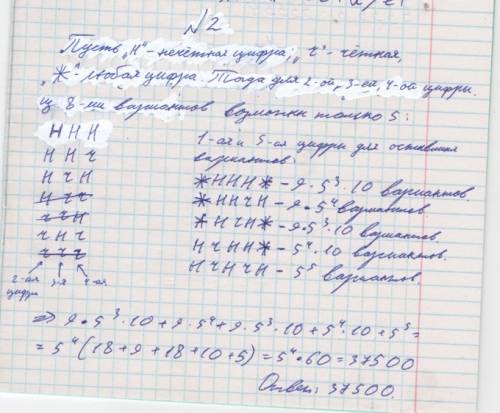 №2
Пусть "Н" - нечётная цифра; "ч" - чётная,
"*" - любая цифра. Тогда для 2-ой, 3-ей, 4-ой цифры.
из 8-ми вариантов возможны только 5:
Н Н Н
Н Н ч
Н ч Н
Н ч ч
ч ч Н
ч Н ч
ч ч ч
2-ая цифра
3-я
4-ая
1-ая и 5-ая цифры для оставшихся
вариантов:
*ННН* - 9·5³·10 вариантов.
*ННчН - 9·5⁴ вариантов
*НчН* - 9·5³·10 вариантов.
НчНН* - 5⁴·10 вариантов.
НчНчН - 5⁵ вариантов.
=> 9·5³·10 + 9·5⁴ + 9·5³·10 + 5⁴·10 + 5⁵ =
= 5⁴(18+9+18+10+5) = 5⁴·60 = 37500
Ответ: 37500.